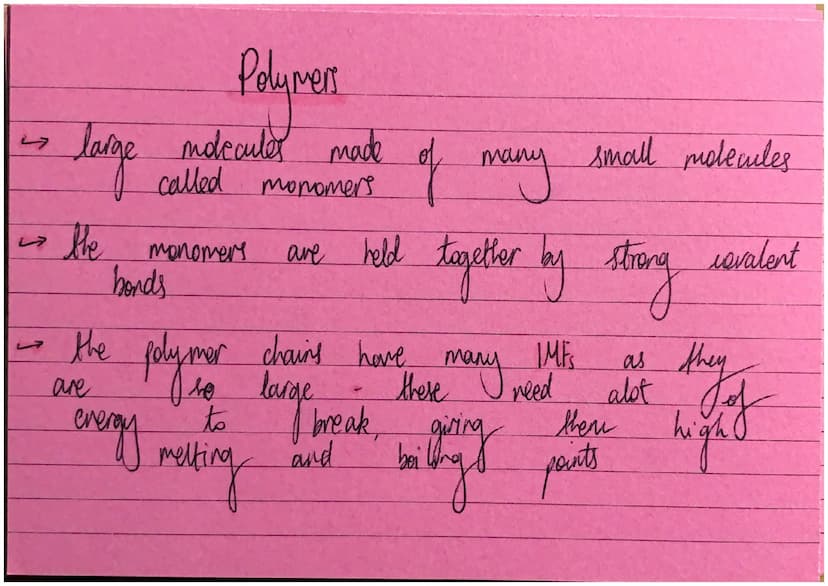 Polymers
↪ large molecules made of many small molecules
called monomers
↪ the monomers are held together by strong covalent
bonds
↪ the polymer chains have many IMFs as they
are so large - these need alot of
energy to break, giving them high
melting and boiling points